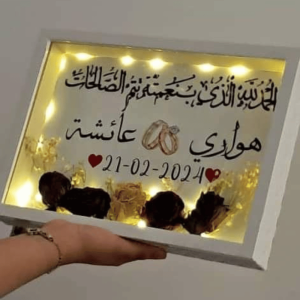 الحمد لله الذي بنعمته تتم الصالحات
هواري عائشة
21-02-2024